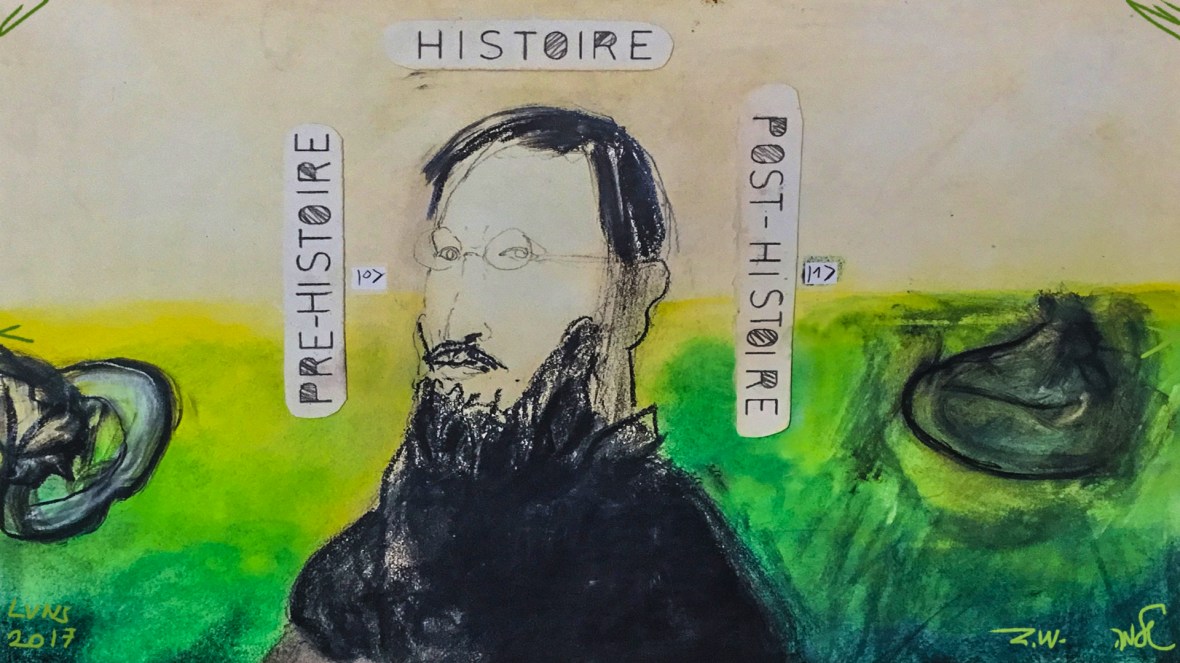 HISTOIRE
PRE-HISTOIRE
|0>
POST-HISTOIRE
|1>
LVNS
2017
Z.W.